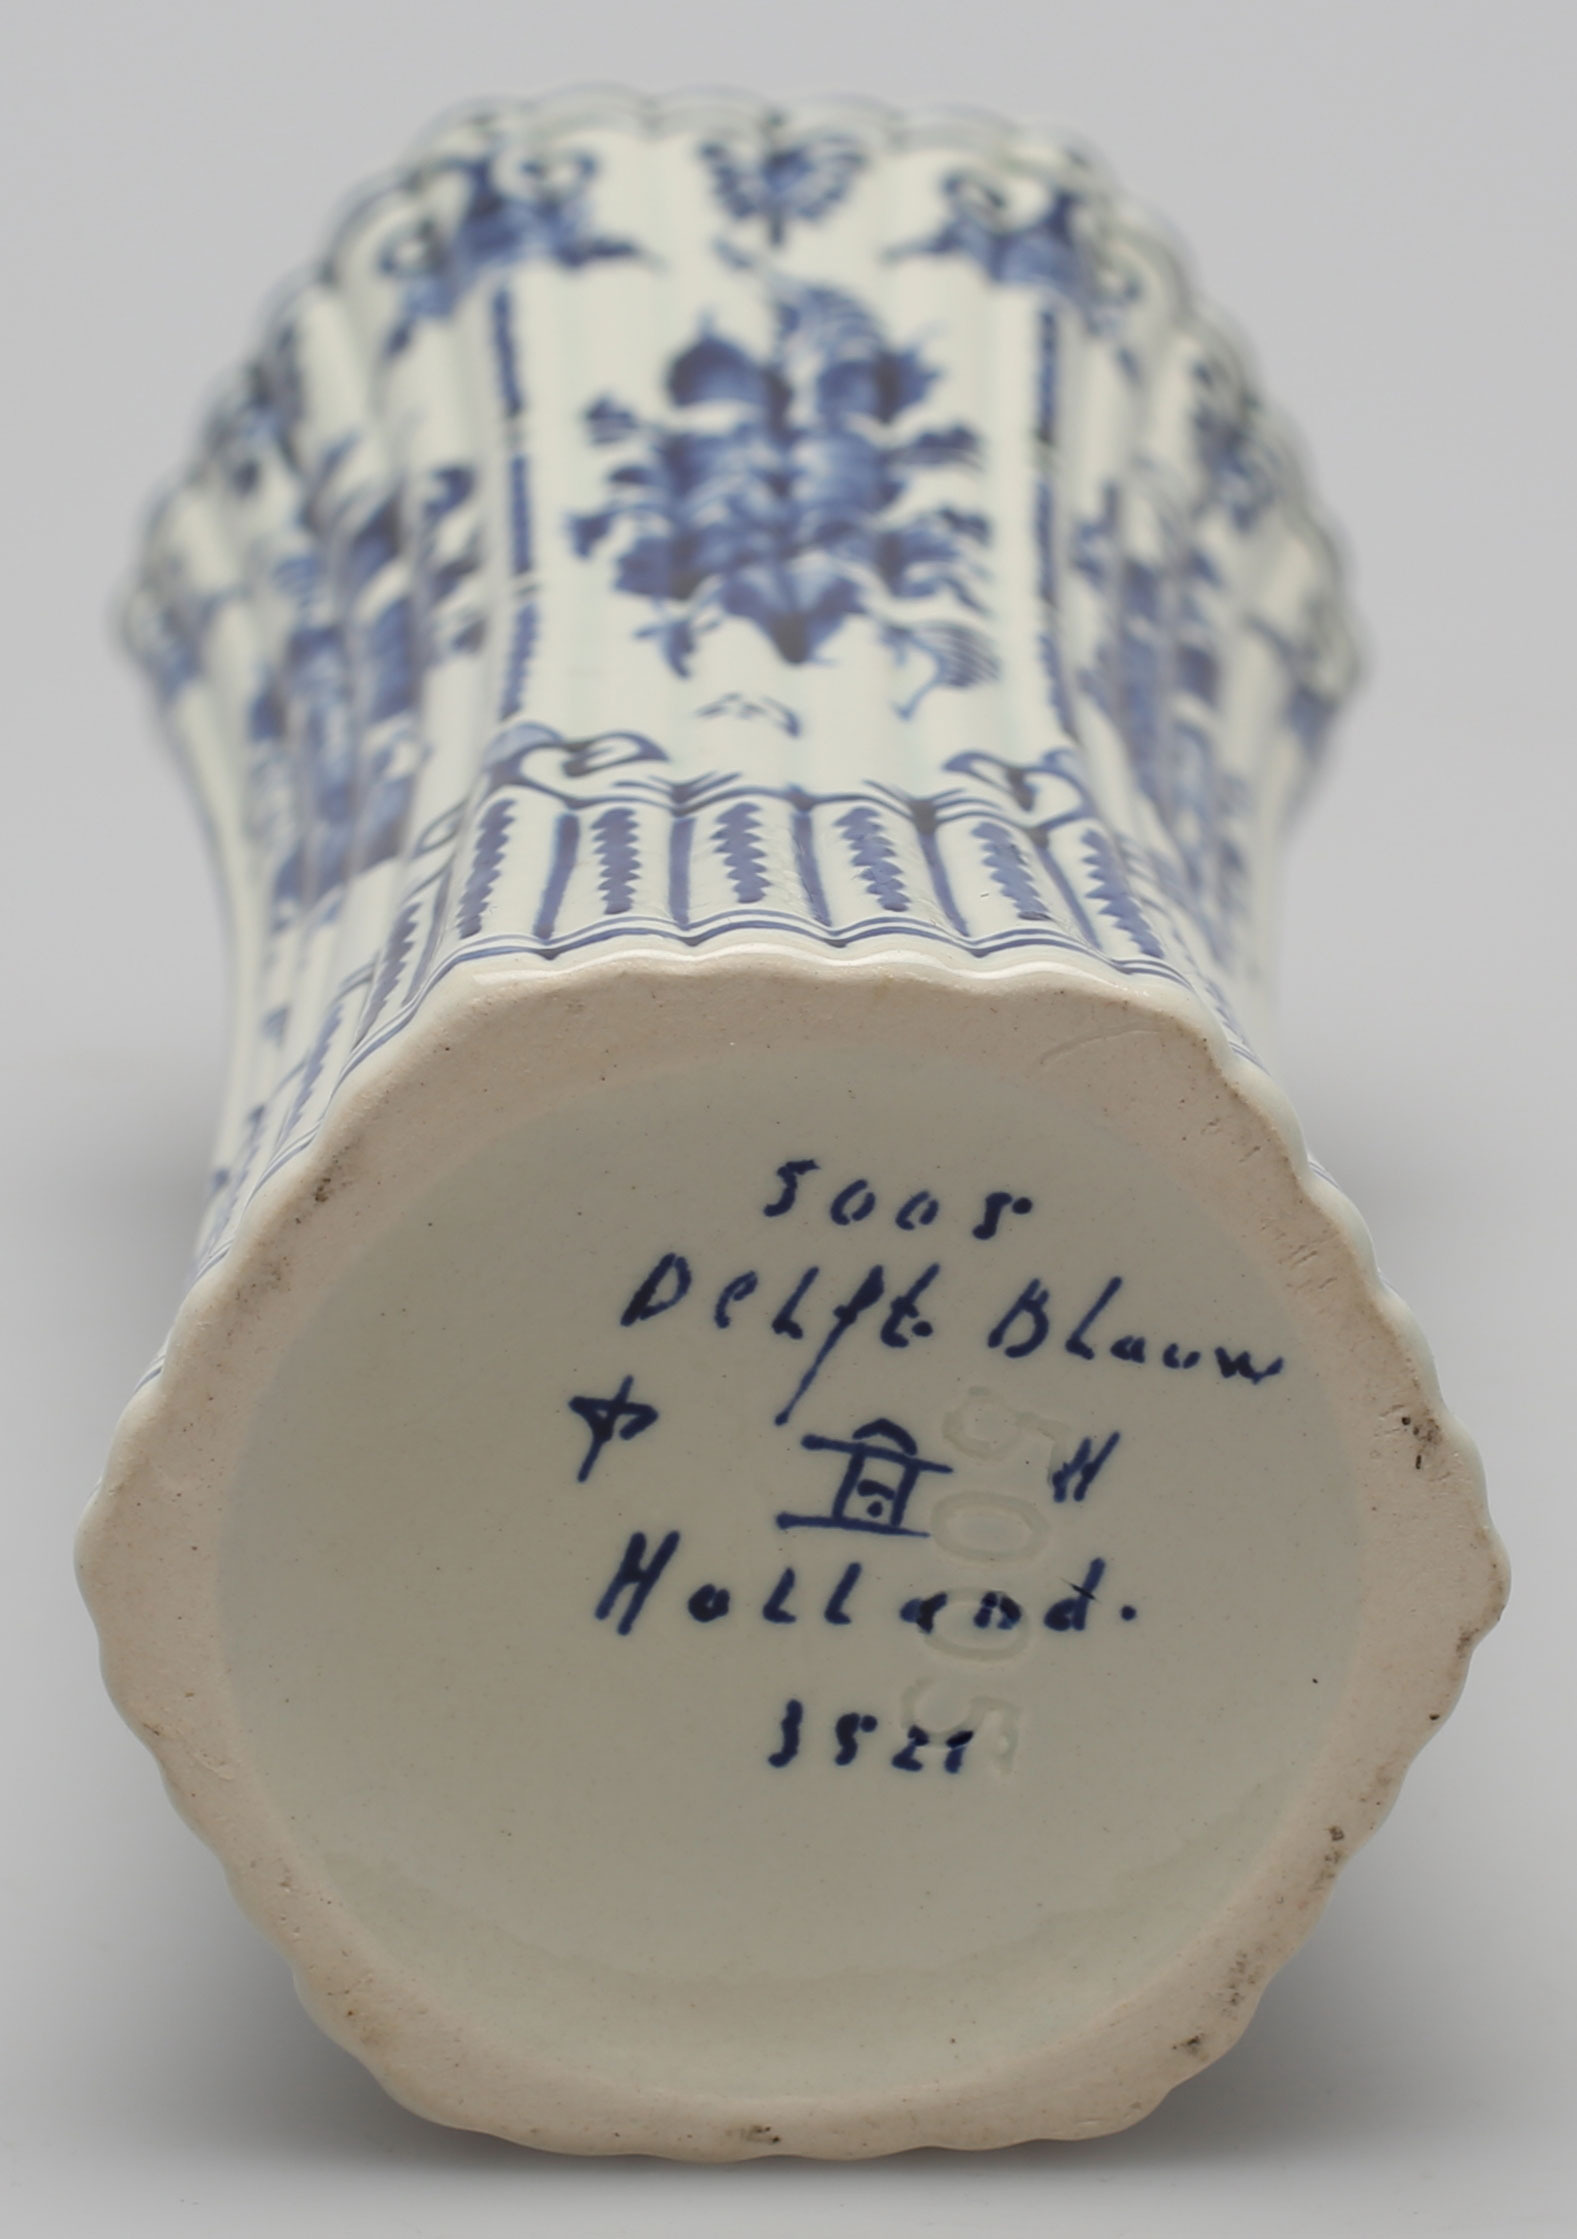 5005
Delft Blauw
H
Holland.
3521
5005